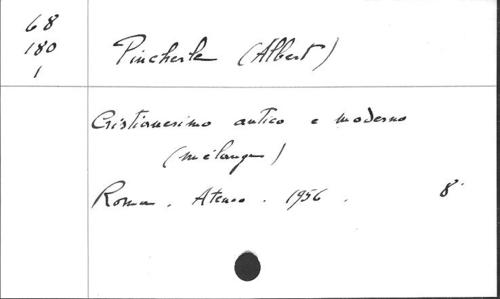 68
180
1
Pincherle (Albert)
Cristianesimo antico e moderno
(mélanges)
Roma. Ateneo. 1956. 8°